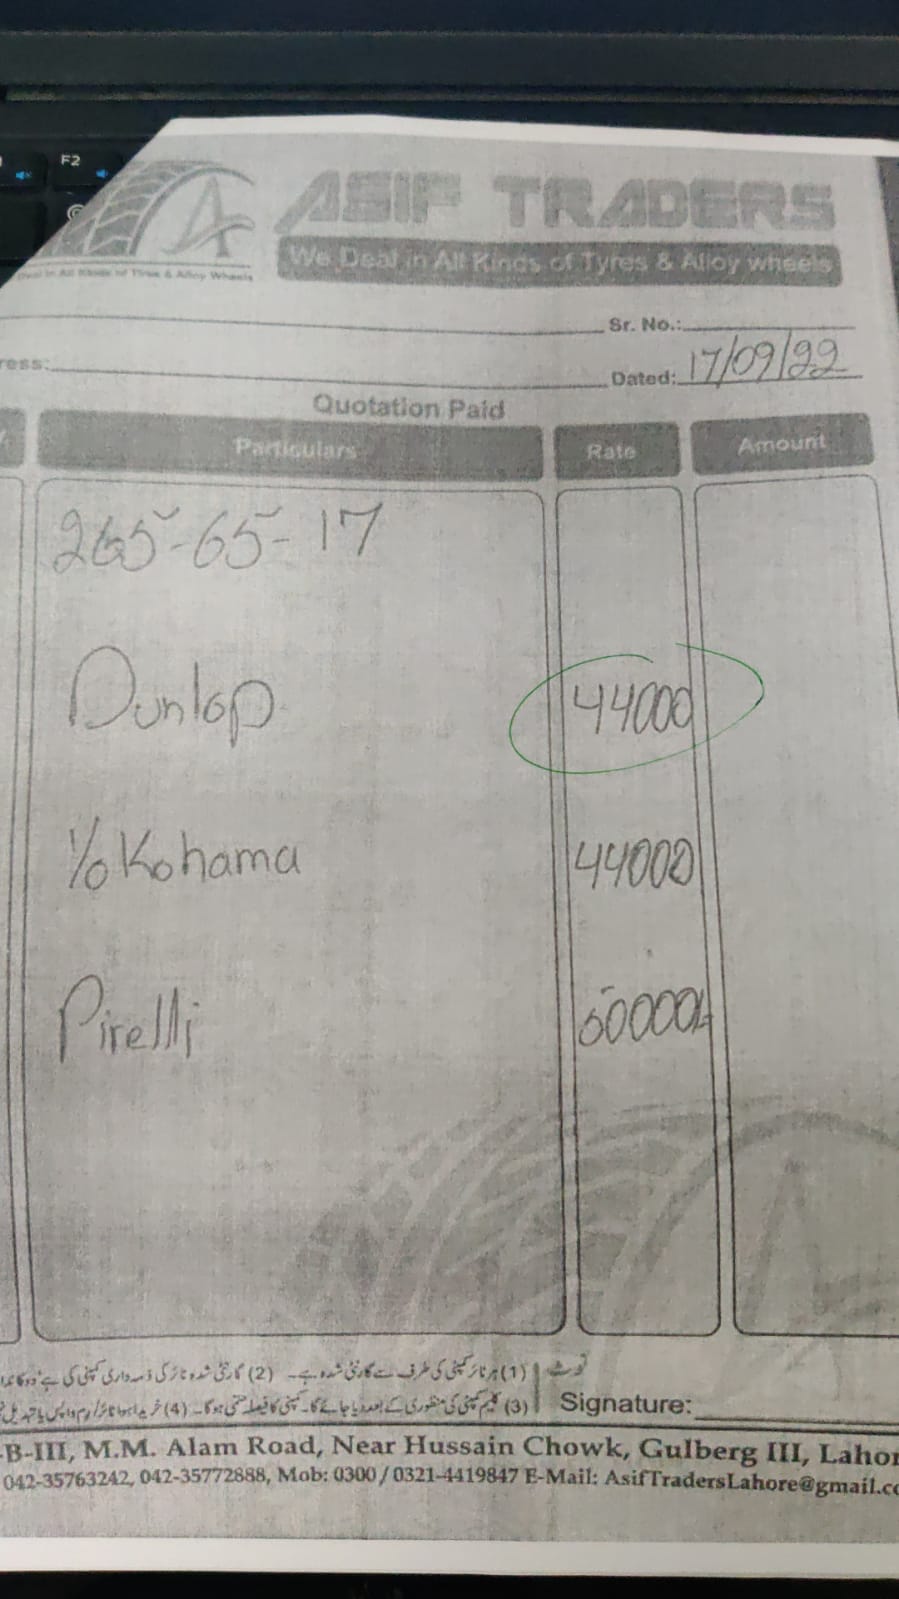 F2
ASIF TRADERS
We Deal in All Kinds of Tyres & Alloy wheels
Deal in All Kinds of Tires & Alloy Wheels
Sr. No.:
ress:
Dated: 17/09/22
Quotation Paid
Particulars Rate Amount
265-65-17
Dunlop 44000
Yokohama 44000
Pirelli 60000
نوٹ (1) ہر ٹائر کمپنی کی طرف سے گارنٹی شدہ ہے۔ (2) گارنٹی شدہ ٹائر کی ذمہ داری کمپنی کی ہے
(3) کلیم کمپنی کی منظوری کے بعد دیا جائے گا۔ کمپنی کا فیصلہ حتمی ہوگا۔ (4) خریدا ہوا ٹائر/رم واپس یا تبدیل
Signature:
-B-III, M.M. Alam Road, Near Hussain Chowk, Gulberg III, Lahor
042-35763242, 042-35772888, Mob: 0300 / 0321-4419847 E-Mail: AsifTradersLahore@gmail.co